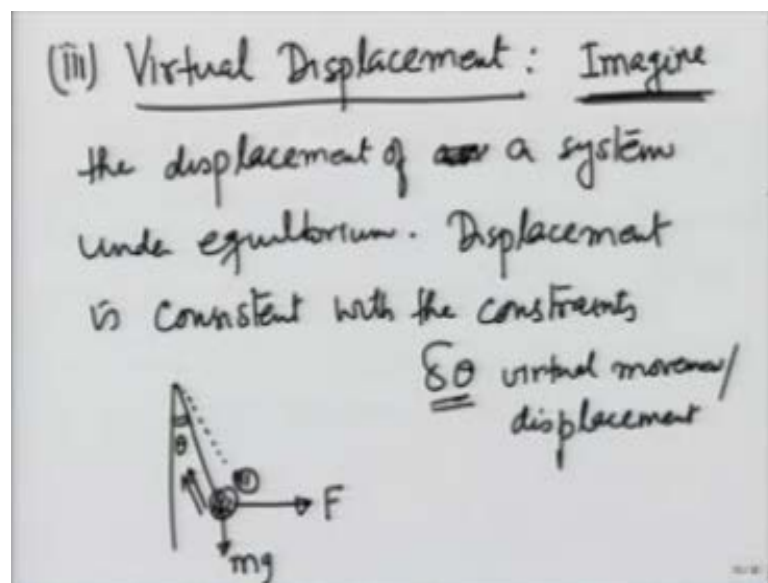 (iii) Virtual Displacement : Imagine
the displacement of a system
under equilibrium. Displacement
is consistent with the constraints
δθ virtual movement/
displacement
θ
F
mg